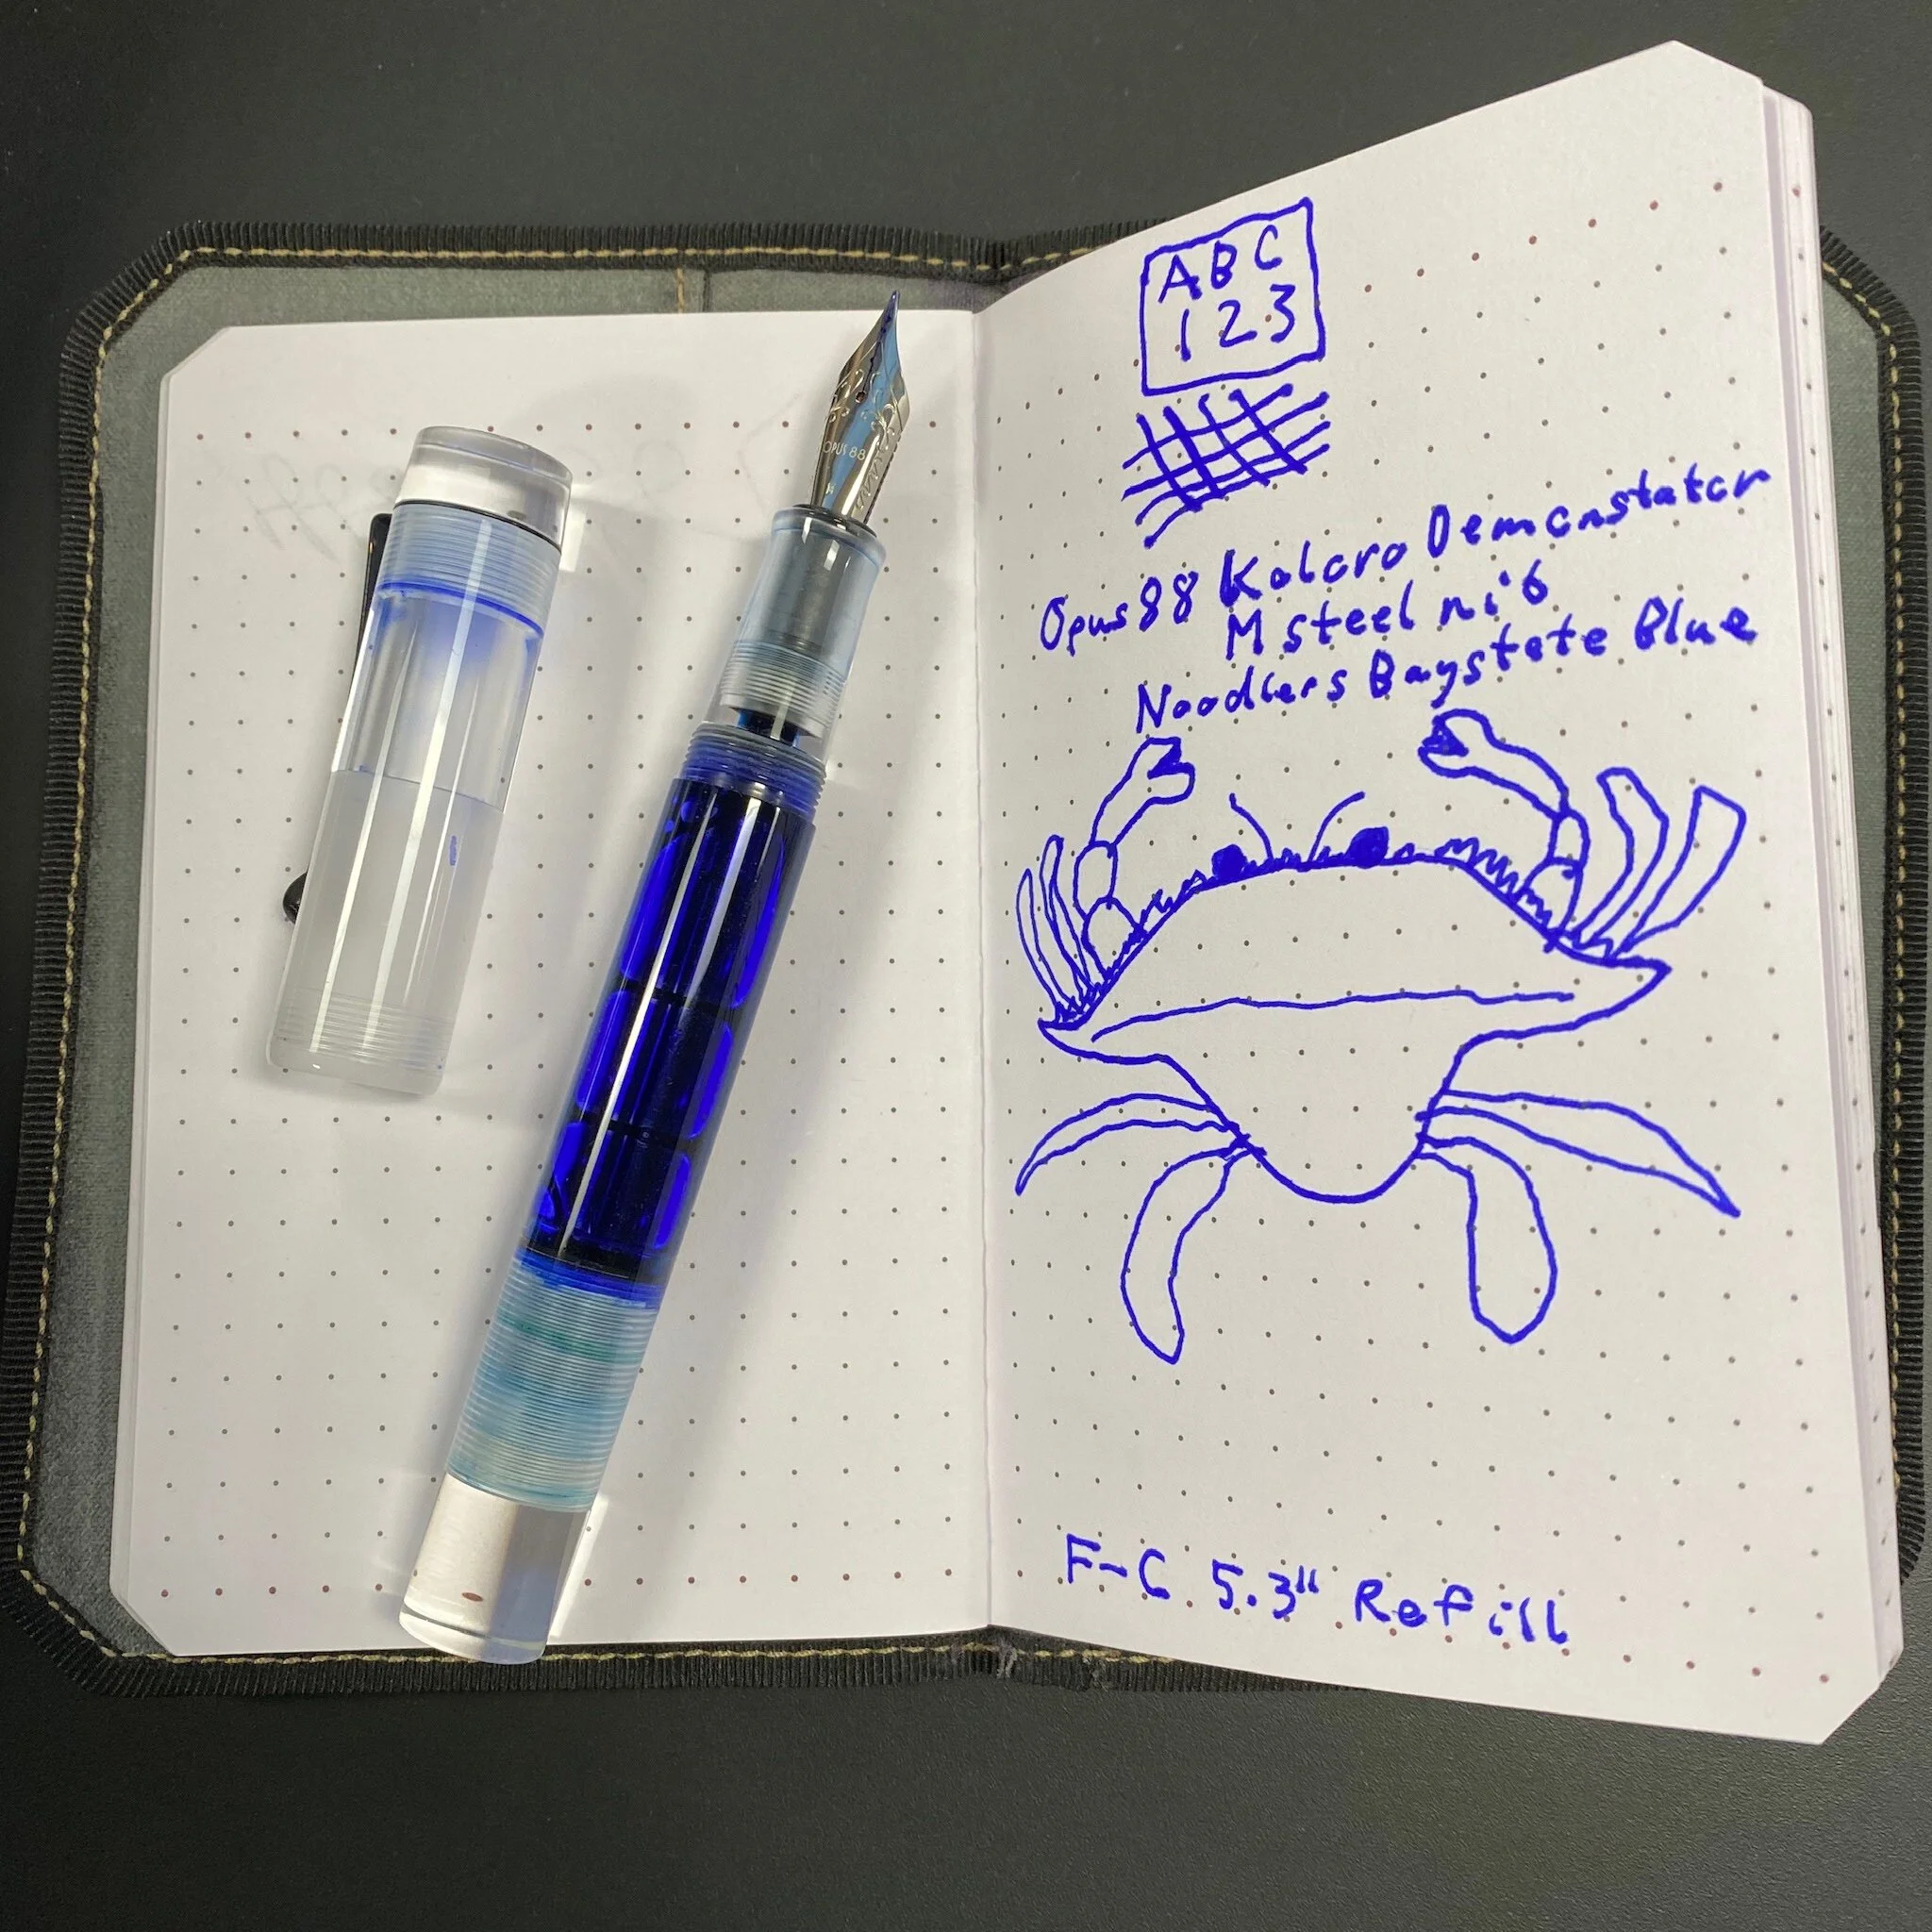 OPUS 88
A B C
1 2 3
Opus 88 Koloro Demonstator
M Steel nib
Noodlers Baystate Blue
F-C 5.3" Refill